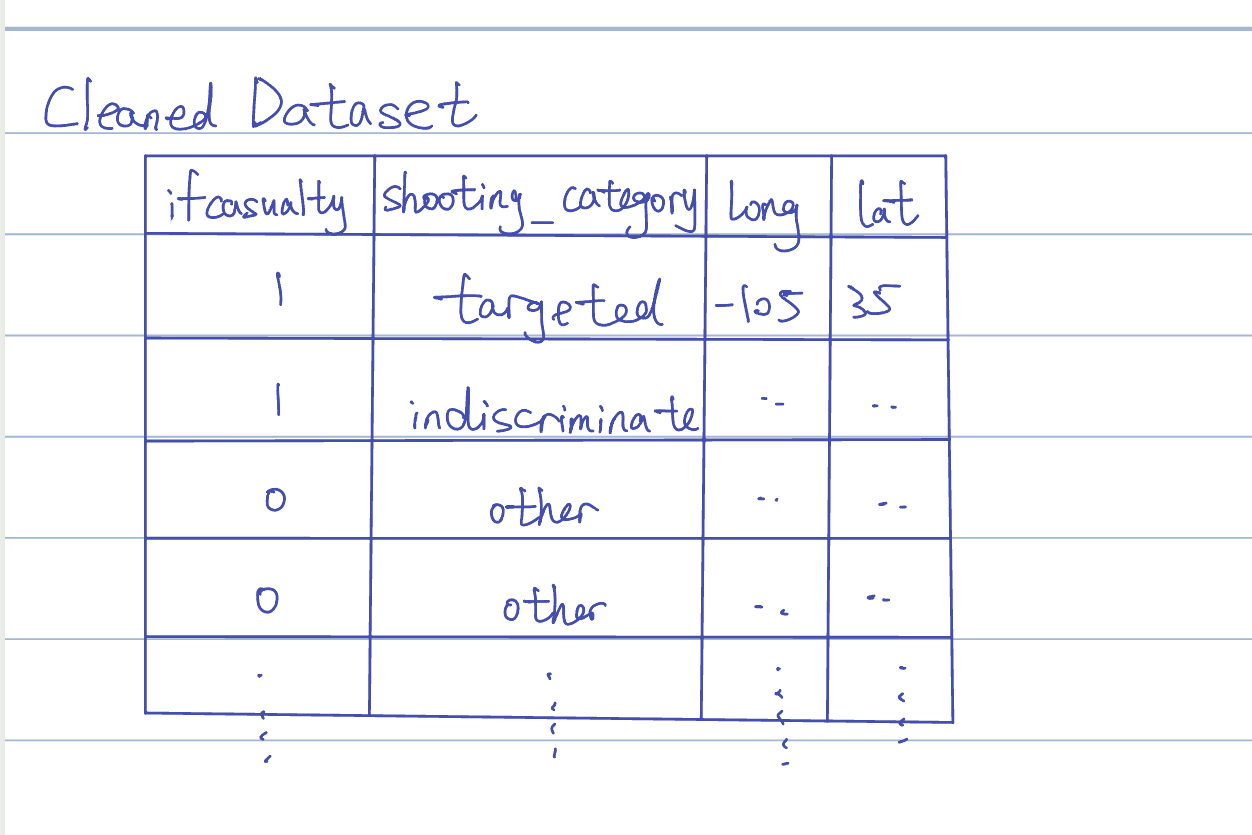 Cleaned Dataset
ifcasualty shooting_category long lat
1 targeted -105 35
1 indiscriminate -- --
0 other -- --
0 other -- --